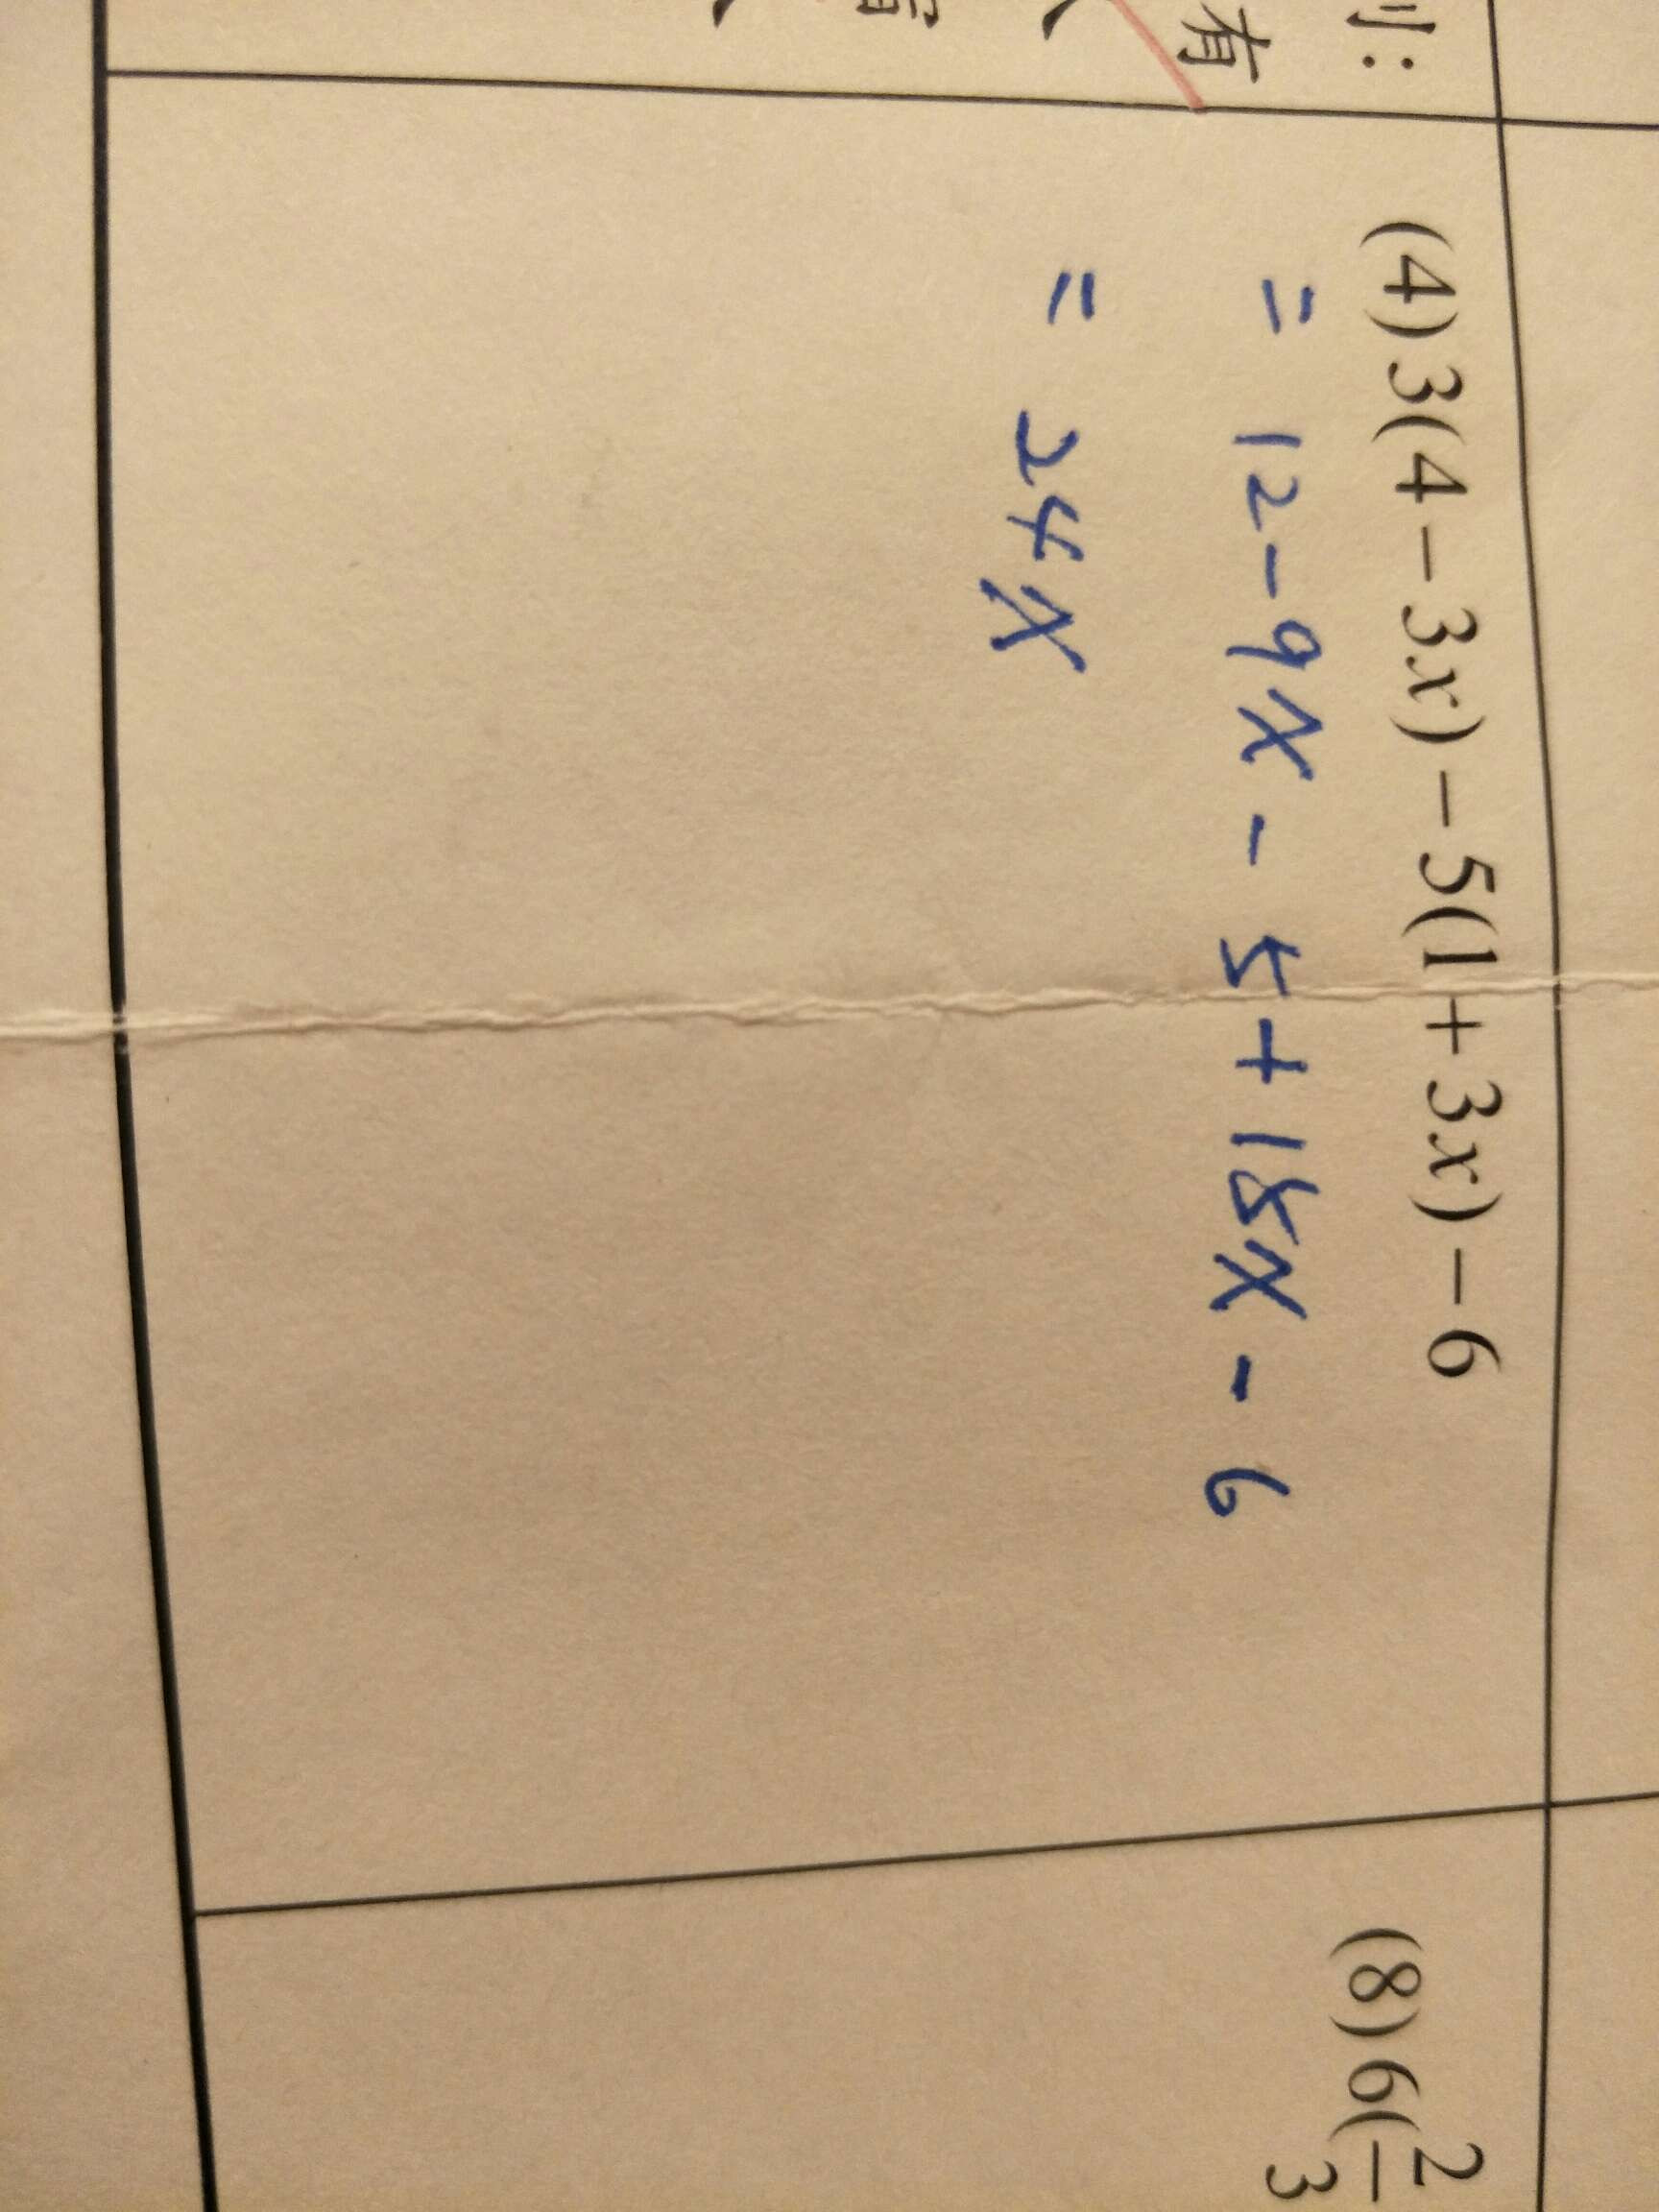 有
(4) 3(4 − 3x) − 5(1 + 3x) − 6
= 12 - 9x - 5 + 15x - 6
= 24x
(8) 6(2/3